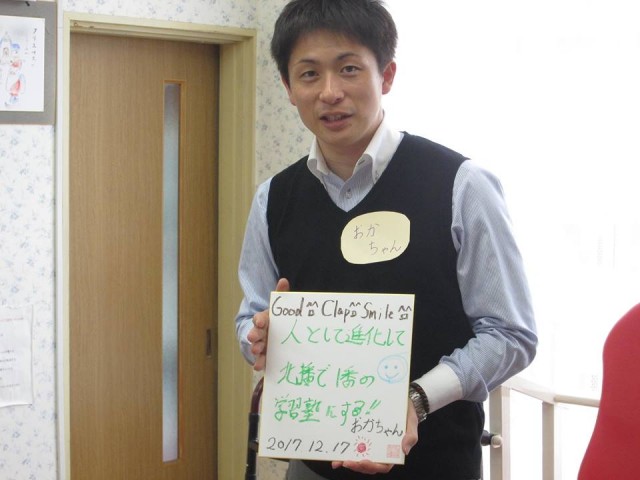 おか
ちゃん
Good^^ Clap^^ Smile^^
人として進化して
北播で1番の
学習塾にする!!
おかちゃん
2017.12.17